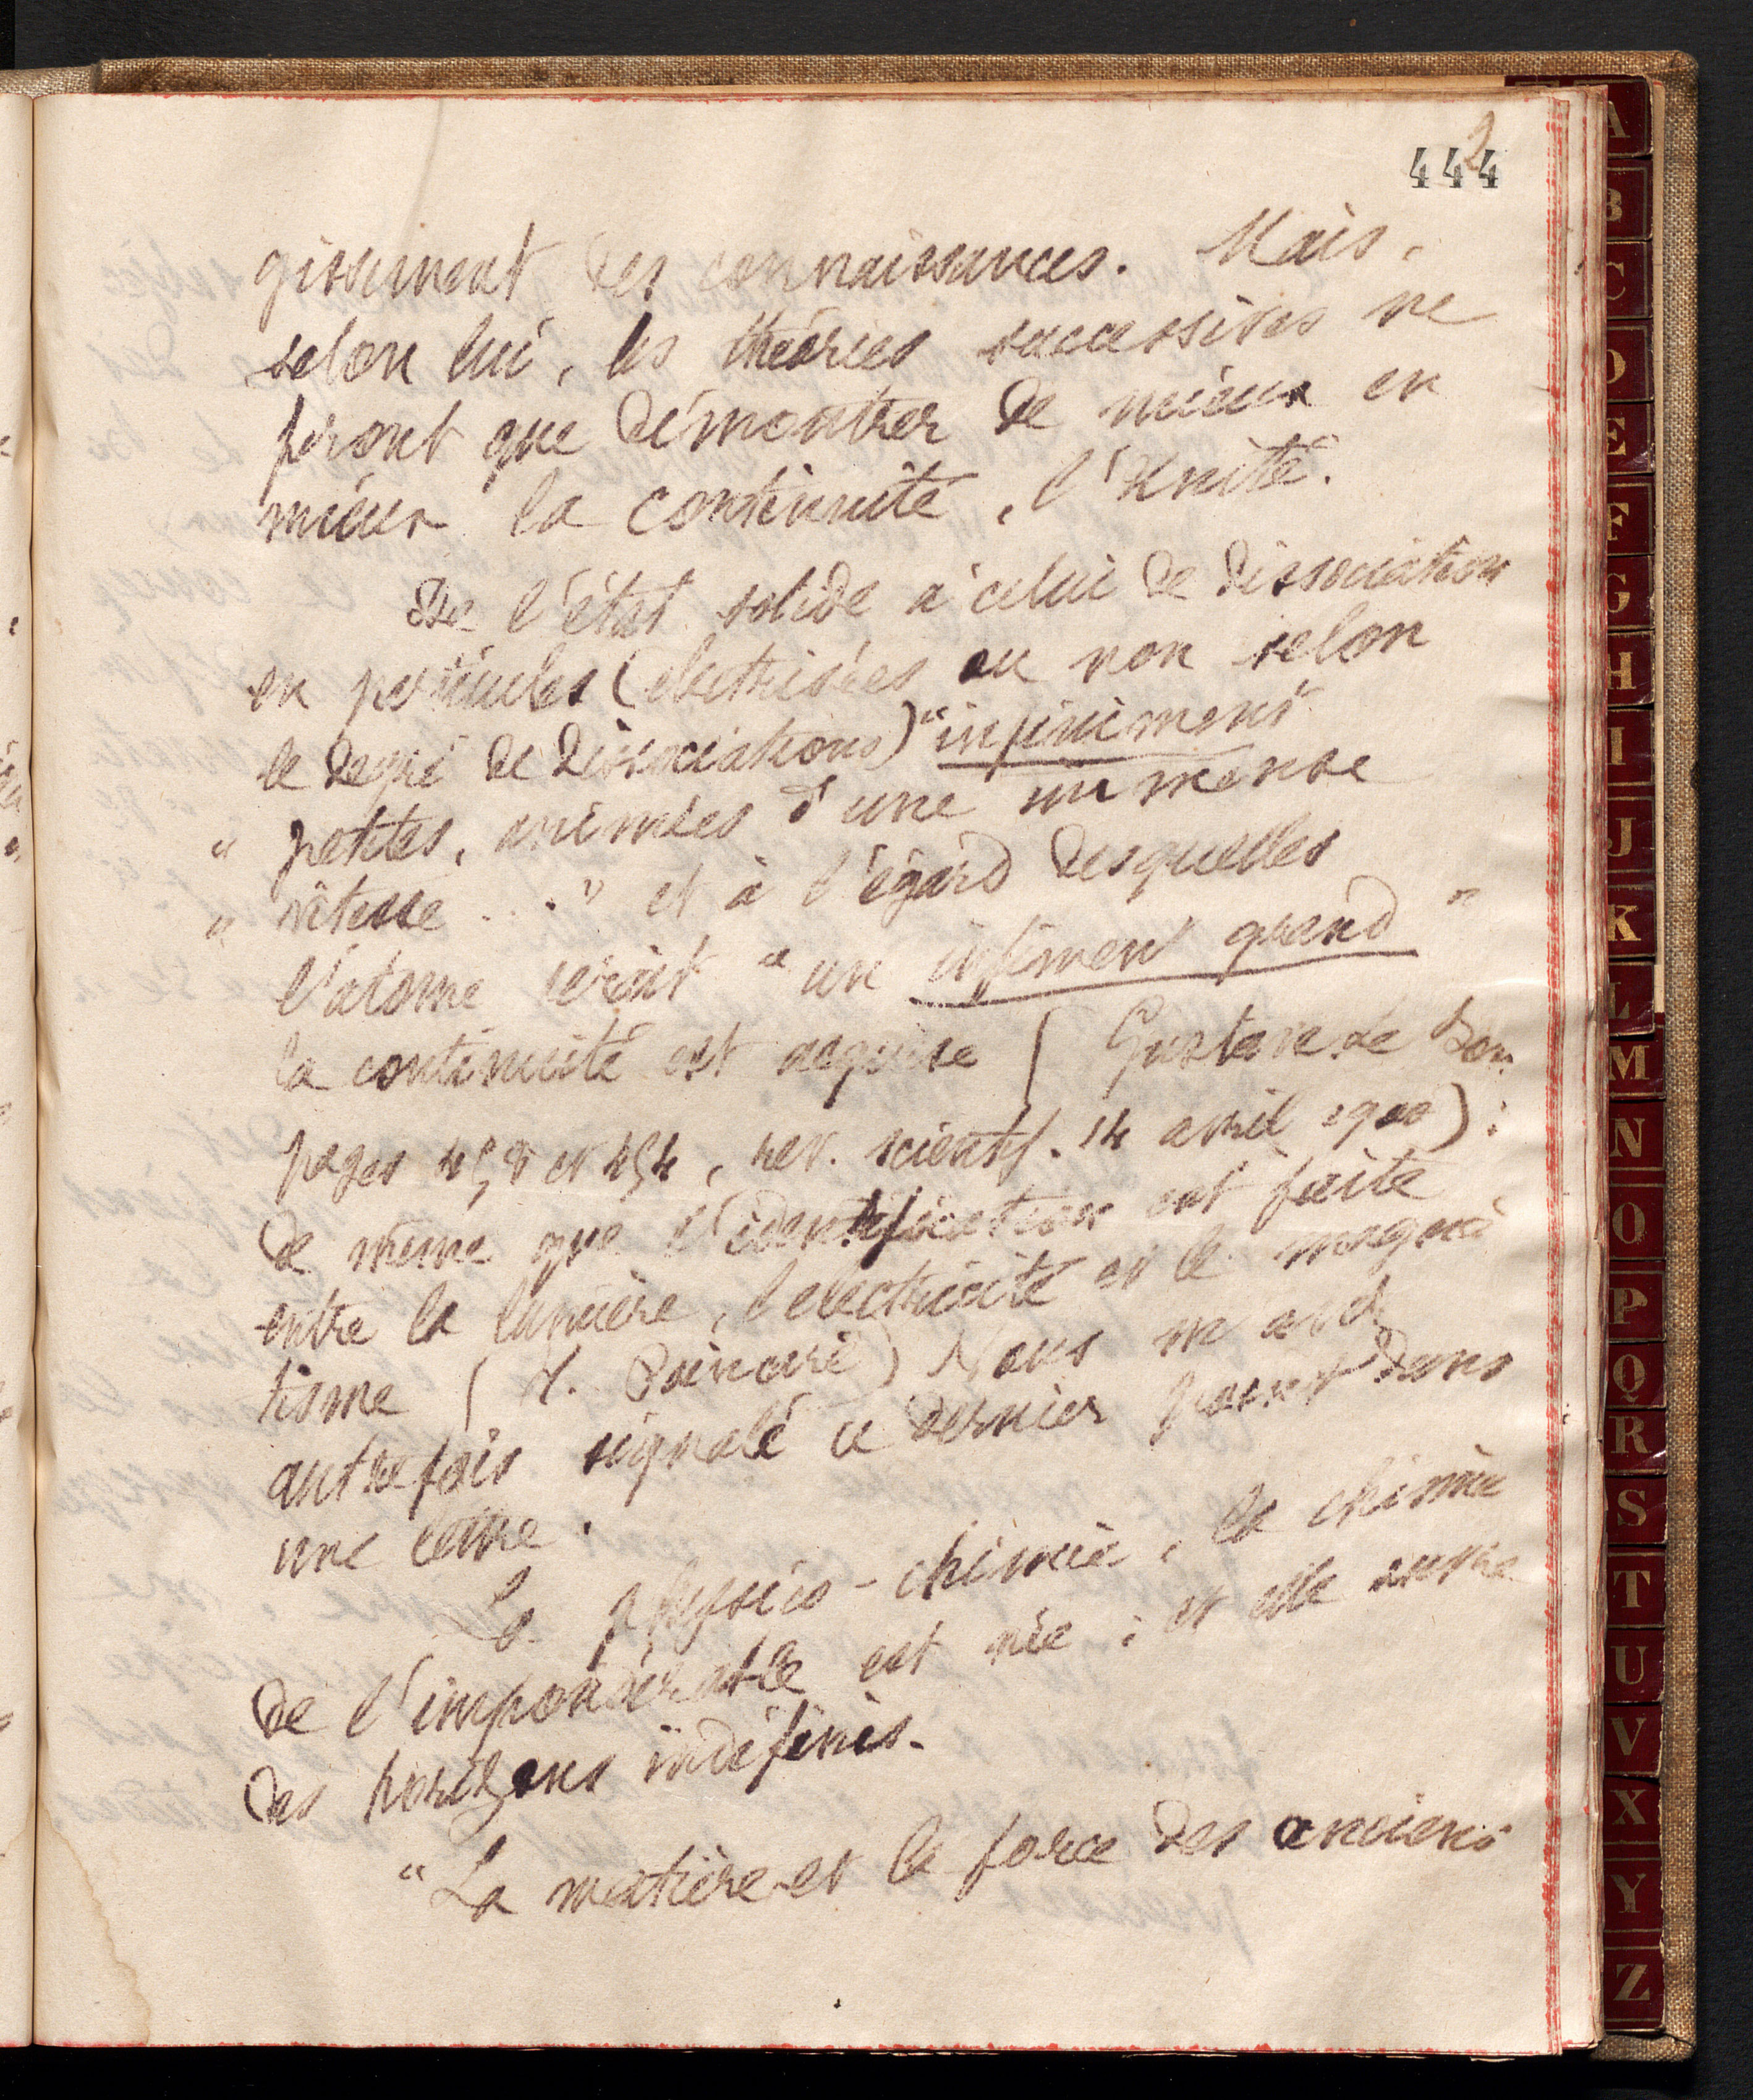 444
2
gissement des connaissances. Mais,
selon lui, les théories successives ne
feront que démontrer de mieux en
mieux la continuité, l'Unité.
De l'état solide à celui de dissociation
en particules (électrisées ou non selon
le degré de dissociations) "infiniment
" petites, animées d'une immense
" vitesse ..." et à l'égard desquelles
l'atome serait "un infiment grand"
la continuité est acquise (Gustave Le Bon
pages 458 et 454, rev. scientif. 14 avril 1900):
de même que l'identification est faite
entre la lumière, l'electricité et le magné
tisme (H. Poincaré) Nous
autrefois signalé ce dernier point dans
une lettre.
La physico-chimie, la chimie
de l'impondérable est née; et elle ouvre
des horizons indéfinis.
"La matière et la force des anciens
A
B
C
D
E
F
G
H
I
J
K
L
M
N
O
P
Q
R
S
T
U
V
X
Y
Z